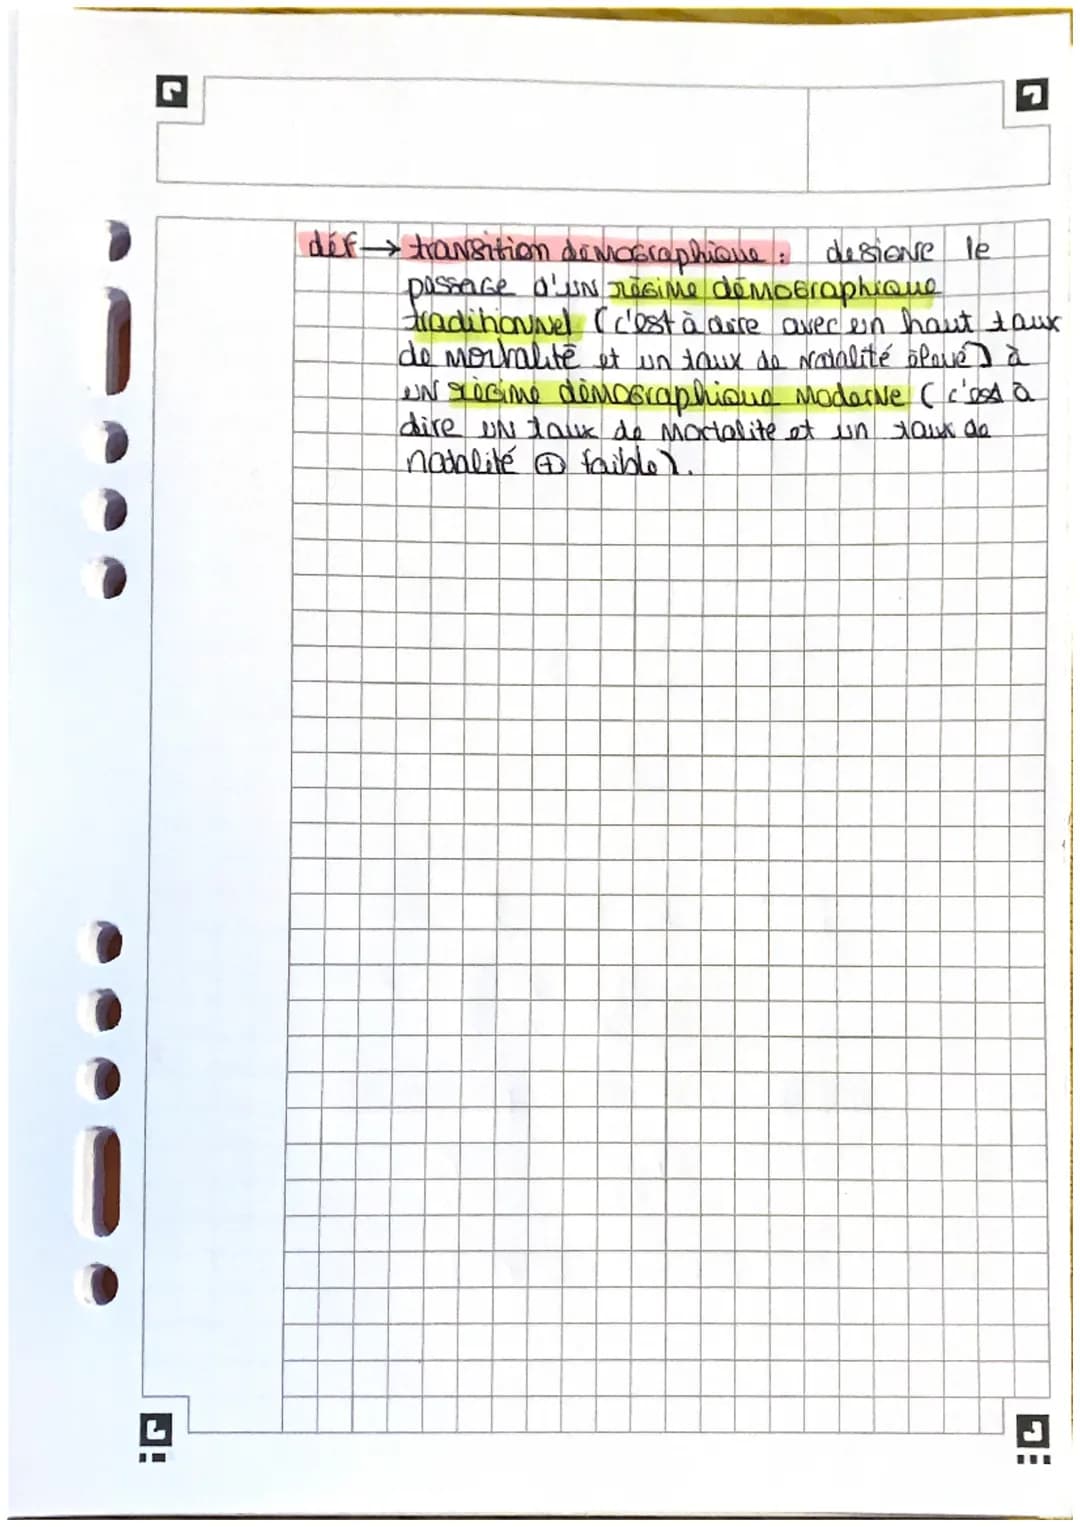 déf → transition démographique : designe le
passage d'un régime démographique
traditionnel (c'est à dire avec un haut taux
de mortalité et un taux de natalité élevé) à
un régime démographique moderne (c'est à
dire un taux de mortalité et un taux de
natalité ⊕ faible).